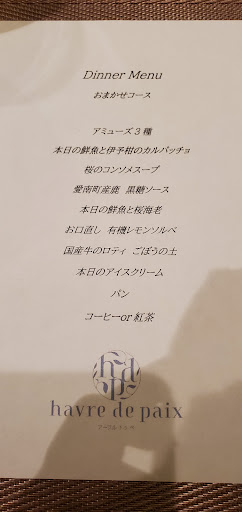 Dinner Menu
おまかせコース
アミューズ3種
本日の鮮魚と伊予柑のカルパッチョ
桜のコンソメスープ
愛南町産鹿 黒糖ソース
本日の鮮魚と桜海老
お口直し 有機レモンソルベ
国産牛のロティ ごぼうの土
本日のアイスクリーム
パン
コーヒーor紅茶
hdp
havre de paix